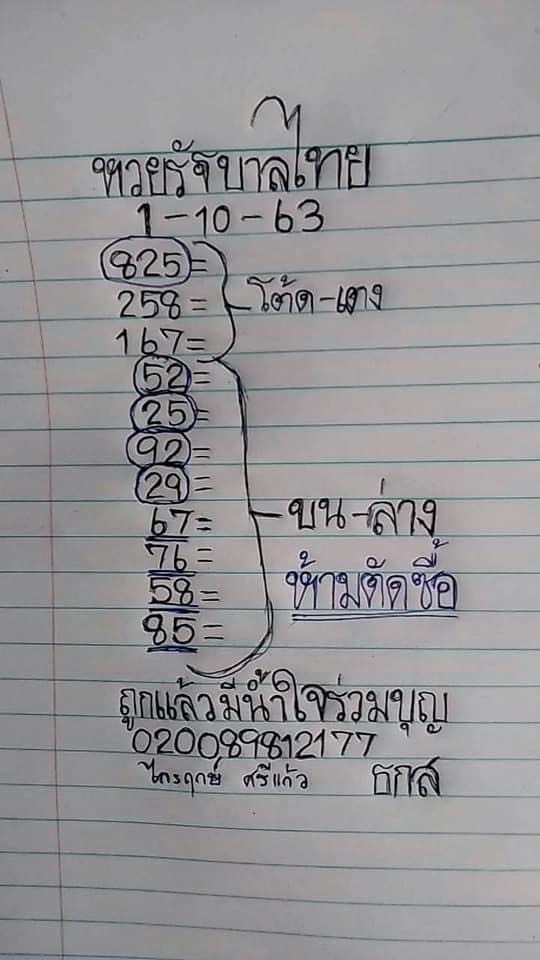 หวยรัฐบาลไทย
1-10-63
825=
258= โต้ด-เตง
167=
52=
25=
92=
29=
67= บน-ล่าง
76=
58= ห้ามตัดซื้อ
85=
ถูกแล้วมีน้ำใจร่วมบุญ
020089812177
ไกรฤกษ์ ศรีแก้ว ธกส